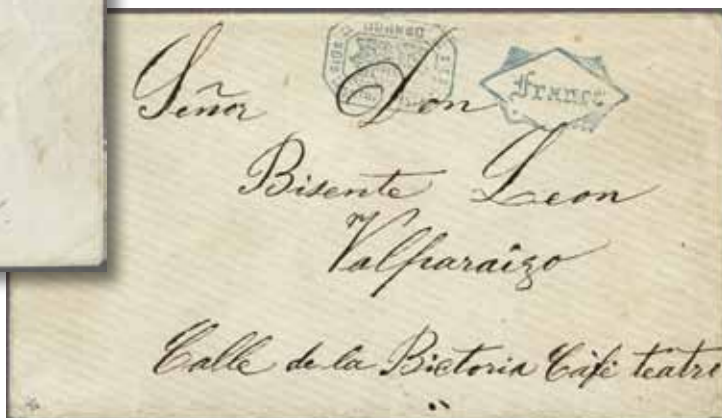 Franco
Señor Don
Bisente Leon
Valparaizo
Calle de la Bictoria Café teatre